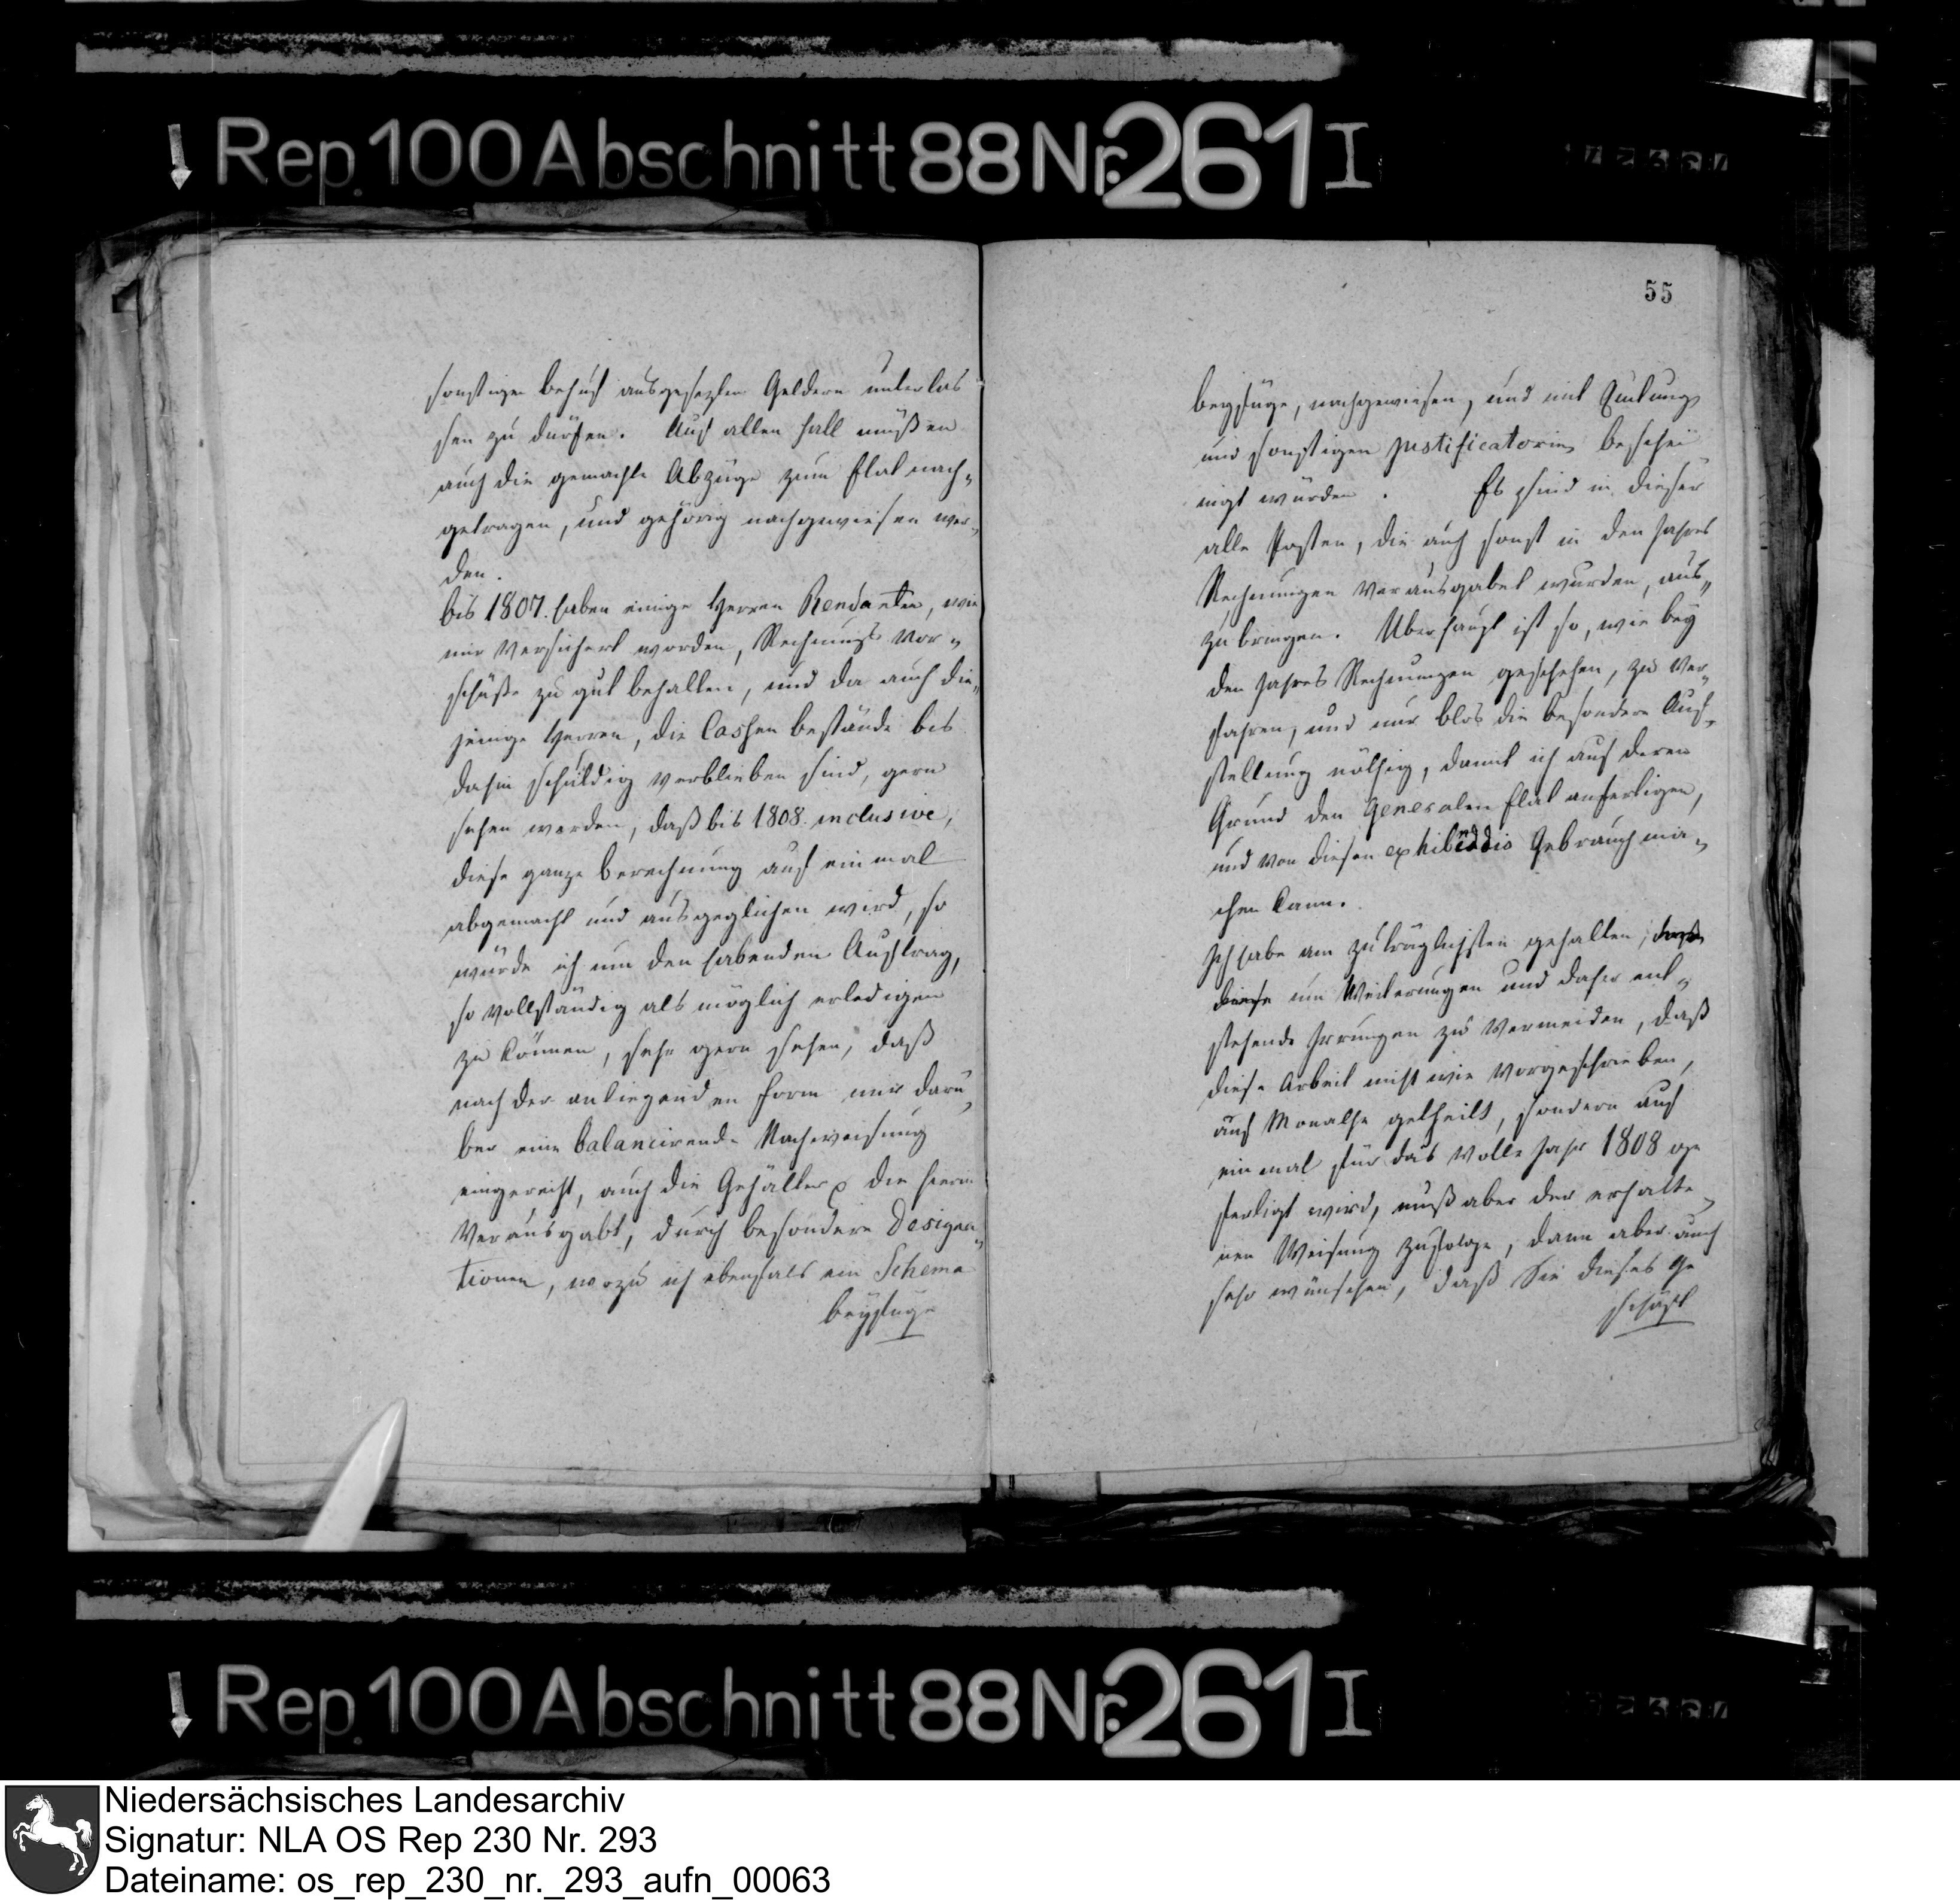 Rep. 100 Abschnitt 88 Nr. 261 I
sonstigen behuf ausgesezten Geldern unterlas
sen zu dürfen. Auf allen fall müßen
auch die gemachte Abzüge zum Etat nach„
getragen, und gehörig nachgewiesen wer„
den.
bis 1807. haben einige Herren Rendanten, wie
mir versichert worden, Rechnungs Vor„
schüße zu gut behalten, und da auch die„
jenige Herren, die Cassen bestände bis
dahin schuldig verblieben sind, gern
sehen werden, daß bis 1808. inclusive,
diese ganze berechnung auf ein mal
abgemacht und ausgeglichen wird, so
würde ich um den habenden Auftrag,
so vollständig als möglich erledigen
zu können, sehr gern sehen, daß
nach der anliegenden form mir darü„
ber eine balancirende Nachweisung
eingereicht, auch die Gehälter die hierin
verausgabt, durch besondere Designa„
tionen, wozu ich ebenfals ein Schema
beyfüge
55
beyfüge, nachgewiesen, und mit Quitung
und sonstigen justificatorien beschei
nigt würden. Es sind in dieser
alle Posten, die auch sonst in den Jahres
Rechnungen verausgabet wurden, aus„
zubringen. Überhaupt ist so, wie bey
den Jahres Rechnungen geschehen, zu ver„
fahren, und nur blos die besondere Auf„
stellung nöthig, damit ich auf deren
Grund den Generalen Etat anfertigen,
und von diesen exhibendis Gebrauch ma„
chen kann.
Ich habe am zuträglichsten gehalten, daß
diese um Weiterungen und daher ent„
stehende Irrungen zu vermeiden, daß
diese Arbeit nicht wie vorgeschrieben,
auf Monathe getheilt, sondern auf
ein mal für das volle Jahr 1808 ge
fertigt wird, muß aber der erhalte„
nen Weisung zufolge, dann aber auch
sehr wünschen, daß Sie dieses Ge
schäft
Rep. 100 Abschnitt 88 Nr. 261 I
Niedersächsisches Landesarchiv
Signatur: NLA OS Rep 230 Nr. 293
Dateiname: os_rep_230_nr._293_aufn_00063